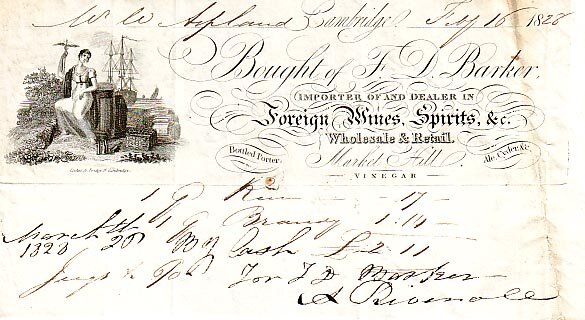 Cambridge Feby 16 1828
Bought of F. D. Barker,
IMPORTER OF AND DEALER IN
Foreign Wines, Spirits, &c.
Wholesale & Retail.
Bottled Porter. Market Hill Ale, Cyder, &c.
VINEGAR
1 Rum 17
1 Brandy 1.14
March 20 By Cash £2.11
1828
For F D Barker